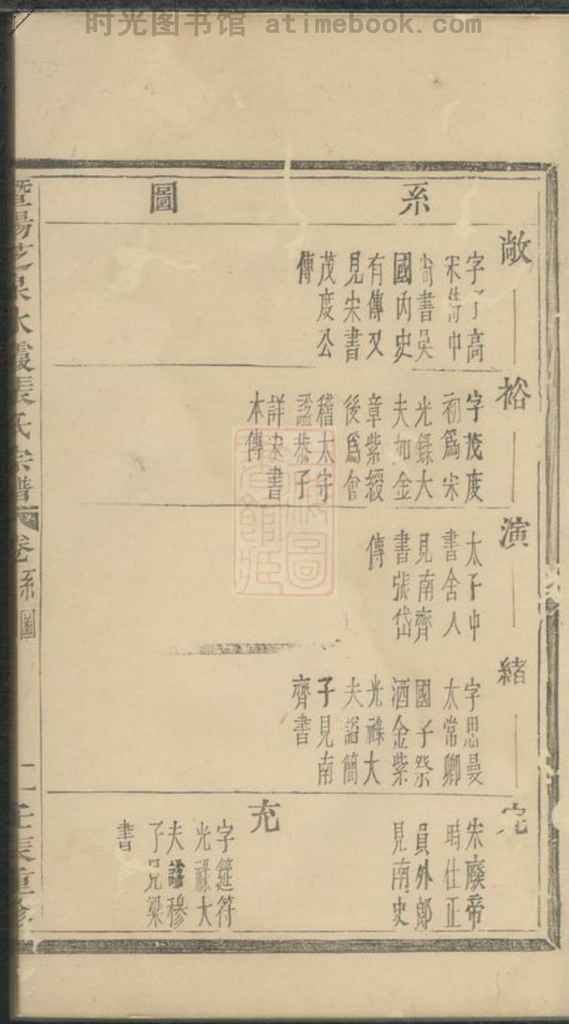 时光图书馆 atimebook.com
系圖
敞
字
高
宋
中
尚書吳
國內史
有傳又
見宋書
茂度公
傳
裕
字茂度
初爲宋
光錄大
夫加金
章紫綬
後爲會
稽太守
諡恭子
詳宋書
本傳
演
太子中
書舍人
見南齊
書張岱
傳
緒
字思曼
太常卿
國子祭
酒金紫
光祿大
夫諡簡
子見南
齊書
完
宋廢帝
時仕正
員外郎
見南史
充
字延符
光祿大
夫諡穆
子見梁
書
張氏宗譜
卷
系圖